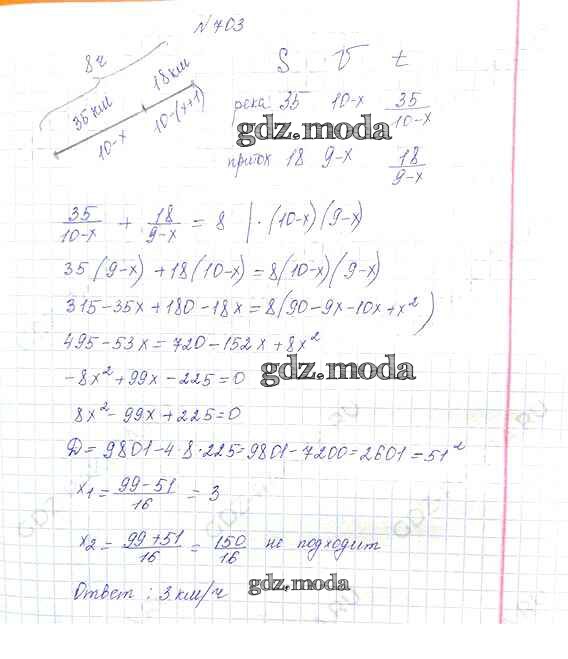 N 703
8 ч
35 км 18 км
10-x 10-(x+1)
S V t
река 35 10-x 35/10-x
gdz.moda
приток 18 9-x 18/9-x
35/10-x + 18/9-x = 8 | ·(10-x)(9-x)
35(9-x)+18(10-x)=8(10-x)(9-x)
315-35x+180-18x=8(90-9x-10x+x²)
495-53x=720-152x+8x²
-8x²+99x-225=0
gdz.moda
8x²-99x+225=0
Д=9801-4·8·225=9801-7200=2601=51²
x₁=99-51/16=3
x₂=99+51/16=150/16 не подходит
Ответ: 3 км/ч
gdz.moda